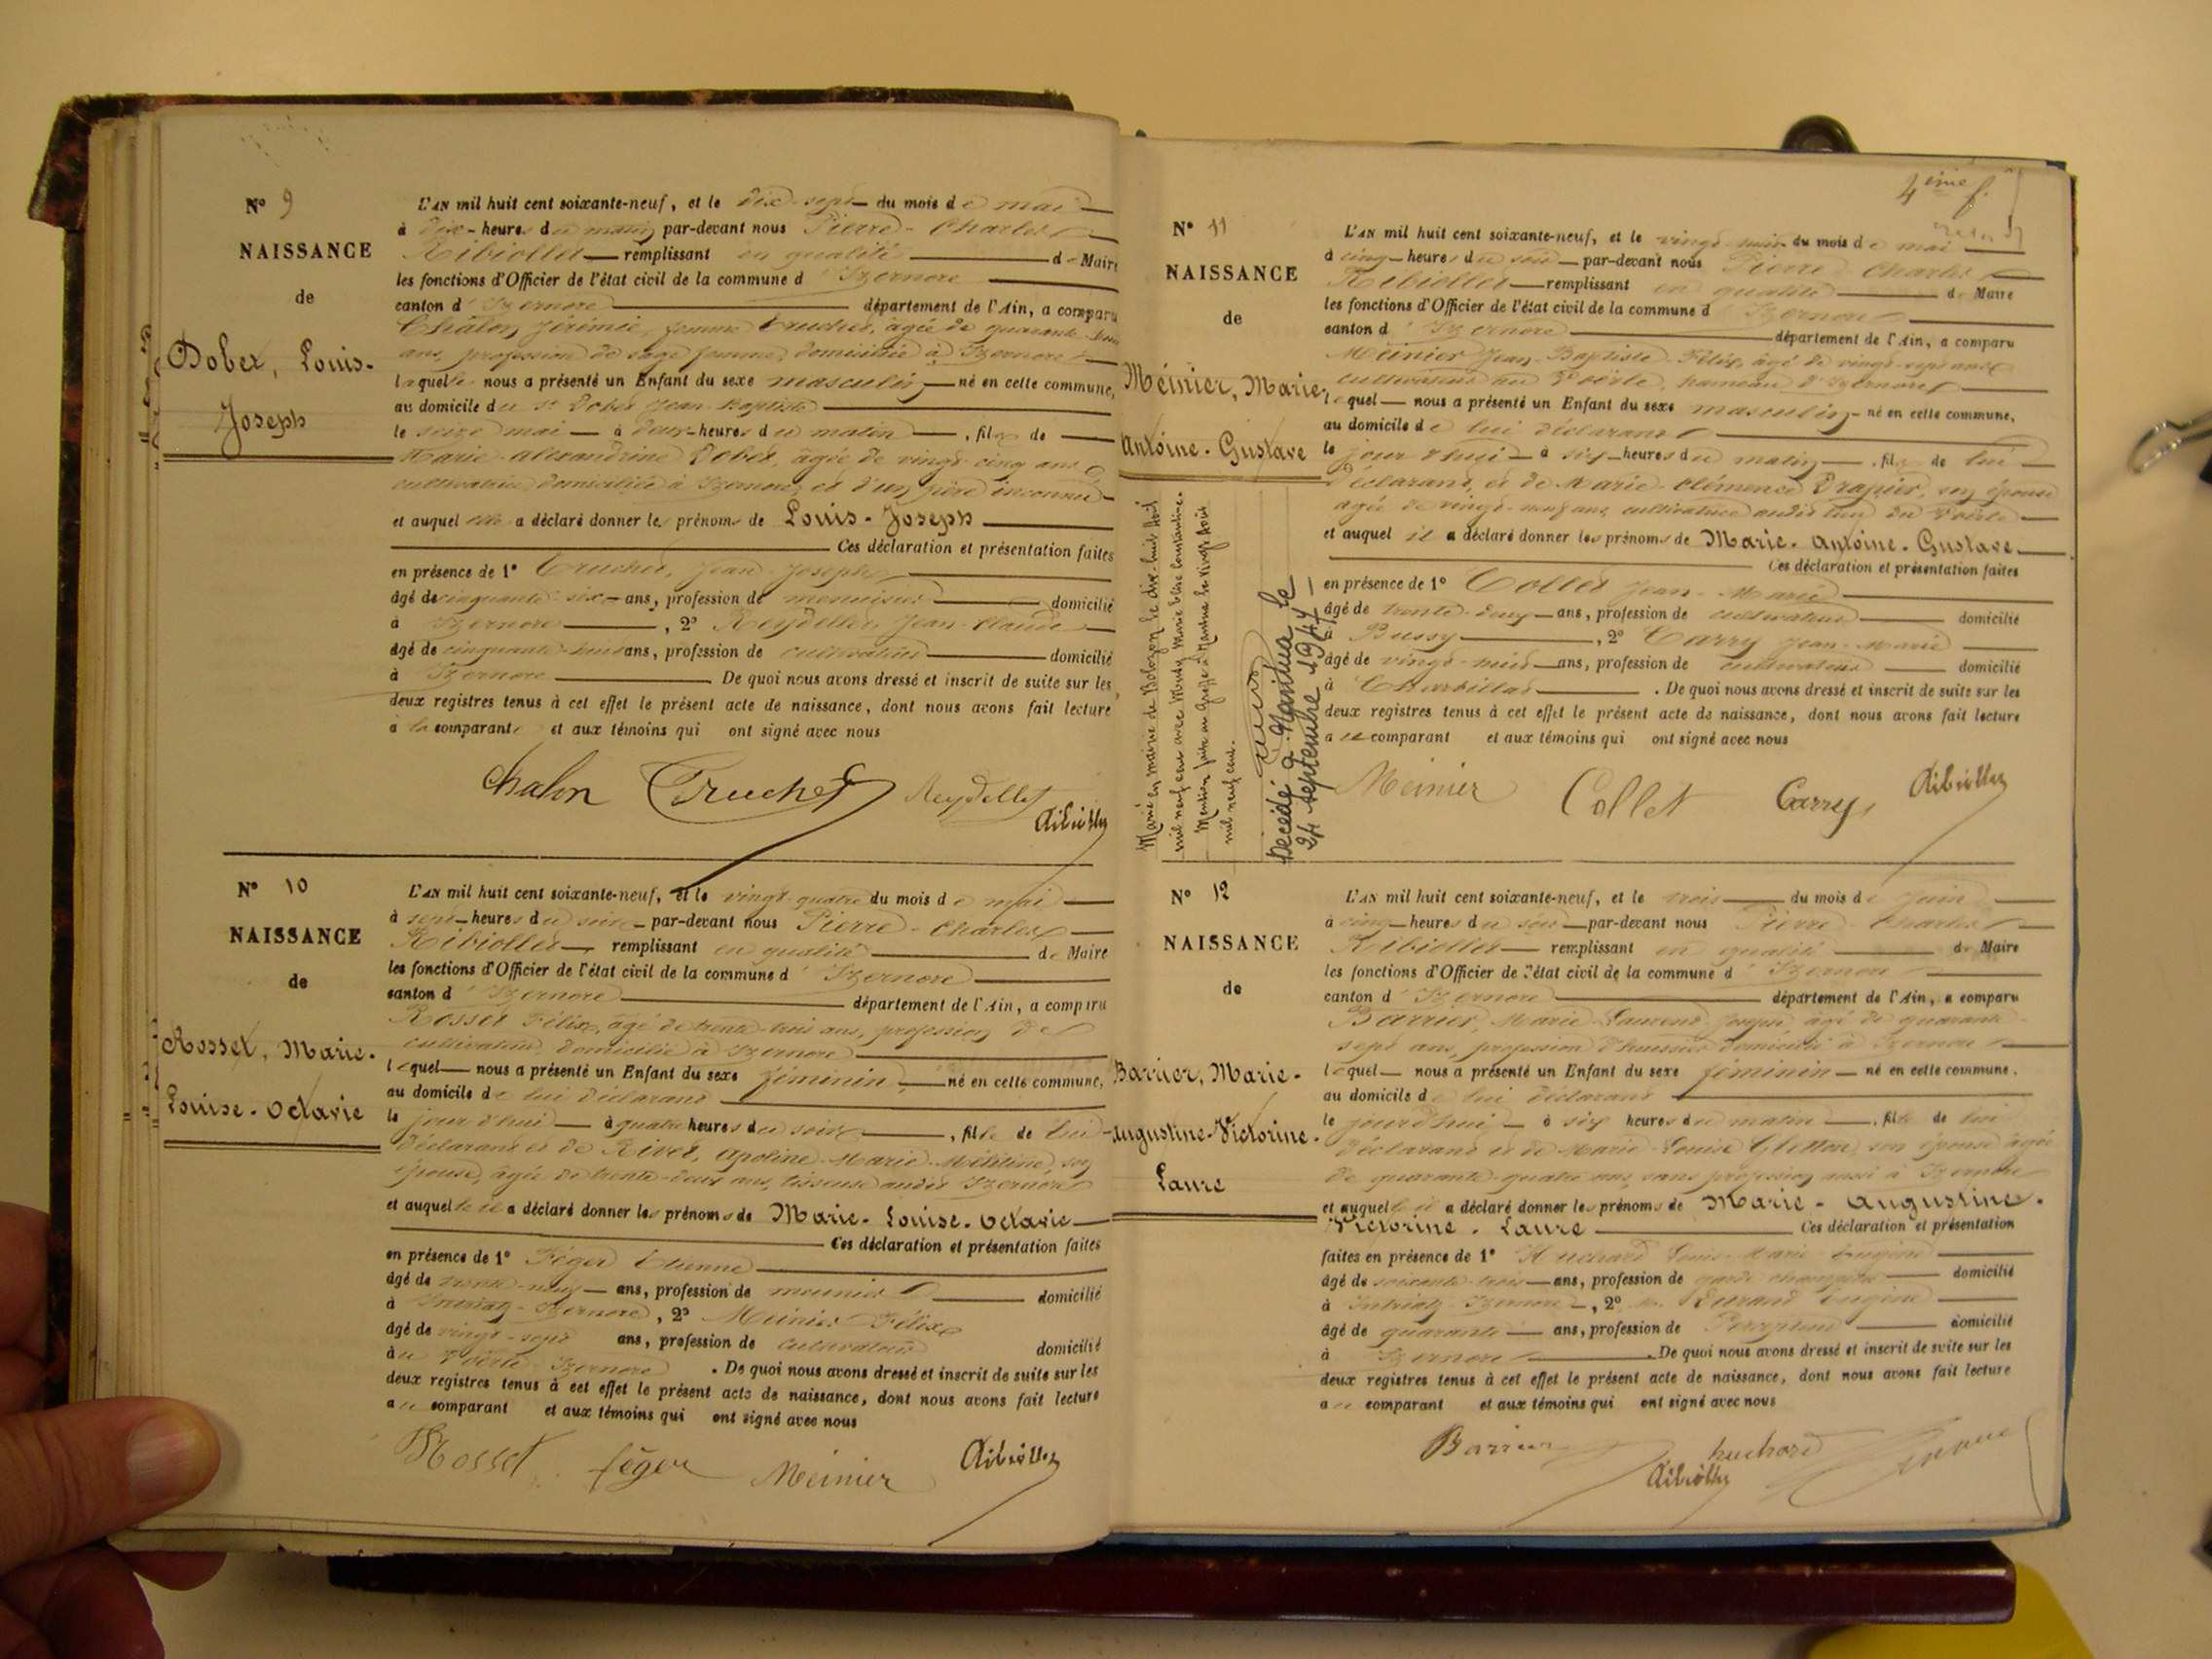 N° 9
NAISSANCE
de
Dobet, Louis-
Joseph
L'AN mil huit cent soixante-neuf, et le dix-sept du mois de mai
à dix heures du matin par-devant nous Pierre-Charles
Ribiollet remplissant en qualité de Maire
les fonctions d'Officier de l'état civil de la commune d'Izernore
canton d'Izernore département de l'Ain, a comparu
Chalon Jérémie, femme Truchet, âgée de quarante
ans, profession de sage femme, domiciliée à Izernore
laquelle nous a présenté un Enfant du sexe masculin né en cette commune,
au domicile du Sr Dobet Jean-Baptiste
le seize mai à deux heures du matin, fils de
Marie-Alexandrine Dobet, âgée de vingt-cinq ans
cultivatrice domiciliée à Izernore, et d'un père inconnu
et auquel elle a déclaré donner les prénoms de Louis-Joseph
Ces déclaration et présentation faites
en présence de 1° Truchet, Jean-Joseph
âgé de cinquante-six ans, profession de menuisier domicilié
à Izernore, 2° Reydellet, Jean-Claude
âgé de cinquante ans, profession de cultivateur domicilié
à Izernore De quoi nous avons dressé et inscrit de suite sur les
deux registres tenus à cet effet le présent acte de naissance, dont nous avons fait lecture
à la comparante et aux témoins qui ont signé avec nous
Chalon Truchet Reydellet
Ribiollet
N° 10
NAISSANCE
de
Rosset, Marie-
Louise-Octavie
L'AN mil huit cent soixante-neuf, et le vingt-quatre du mois de mai
à sept heures du soir par-devant nous Pierre-Charles
Ribiollet remplissant en qualité de Maire
les fonctions d'Officier de l'état civil de la commune d'Izernore
canton d'Izernore département de l'Ain, a comparu
Rosset Félix, âgé de trente-trois ans, profession de
cultivateur, domicilié à Izernore
lequel nous a présenté un Enfant du sexe féminin né en cette commune,
au domicile de lui déclarant
le jour d'hui à quatre heures du soir, fille de lui
déclarant et de Rivet, Apoline-Marie-Mélitine, son
épouse, âgée de trente-deux ans, tisseuse audit Izernore
et auquel il a déclaré donner les prénoms de Marie-Louise-Octavie
Ces déclaration et présentation faites
en présence de 1° Féger Etienne
âgé de trente-neuf ans, profession de meunier domicilié
à Intriatz-Izernore, 2° Meinier Félix
âgé de vingt-sept ans, profession de cultivateur domicilié
au Voërle Izernore. De quoi nous avons dressé et inscrit de suite sur les
deux registres tenus à cet effet le présent acte de naissance, dont nous avons fait lecture
au comparant et aux témoins qui ont signé avec nous
Rosset féger Meinier Ribiollet
4ème f.
N° 11
NAISSANCE
de
Méinier, Marie-
Antoine-Gustave
Marié en mairie de Bolozon le dix-huit Août
mil neuf cent avec Marie
Mention faite au Greffe à Nantua le vingt Août
mil neuf cent.
Décédé à Nantua le
24 septembre 1947
L'AN mil huit cent soixante-neuf, et le vingt-huit du mois de mai
à cinq heures du soir par-devant nous Pierre-Charles
Ribiollet remplissant en qualité de Maire
les fonctions d'Officier de l'état civil de la commune d'Izernore
canton d'Izernore département de l'Ain, a comparu
Meinier Jean-Baptiste-Félix, âgé de vingt-sept ans
cultivateur au Voërle, hameau d'Izernore
lequel nous a présenté un Enfant du sexe masculin né en cette commune,
au domicile de lui déclarant
le jour d'hui à six heures du matin, fils de lui
déclarant, et de Marie-Clémence Drapier, son épouse
âgée de vingt-neuf ans, cultivatrice audit lieu du Voërle
et auquel il a déclaré donner les prénoms de Marie-Antoine-Gustave
Ces déclaration et présentation faites
en présence de 1° Collet Jean-Marie
âgé de trente-deux ans, profession de cultivateur domicilié
à Bussy, 2° Carry Jean-Marie
âgé de vingt-huit ans, profession de cultivateur domicilié
à Charbillat. De quoi nous avons dressé et inscrit de suite sur les
deux registres tenus à cet effet le présent acte de naissance, dont nous avons fait lecture
au comparant et aux témoins qui ont signé avec nous
Meinier Collet Carry Ribiollet
N° 12
NAISSANCE
de
Barrier, Marie-
Augustine-Victorine-
Laure
L'AN mil huit cent soixante-neuf, et le trois du mois de Juin
à cinq heures du soir par-devant nous Pierre-Charles
Ribiollet remplissant en qualité de Maire
les fonctions d'Officier de l'état civil de la commune d'Izernore
canton d'Izernore département de l'Ain, a comparu
Barrier, Marie-Laurent-Joseph, âgé de quarante-
sept ans, profession d'huissier domicilié à Izernore
lequel nous a présenté un Enfant du sexe féminin né en cette commune,
au domicile de lui déclarant
le jour d'hui à six heures du matin, fille de lui
déclarant et de Marie-Louise Gletton, son épouse âgée
de quarante-quatre ans, sans profession aussi à Izernore
et auquel il a déclaré donner les prénoms de Marie-Augustine-
Victorine-Laure Ces déclaration et présentation
faites en présence de 1° Huchard Louis-Marie-Eugène
âgé de soixante-trois ans, profession de garde champêtre domicilié
à Intriatz Izernore, 2° Durand Eugène
âgé de quarante ans, profession de Percepteur domicilié
à Izernore. De quoi nous avons dressé et inscrit de suite sur les
deux registres tenus à cet effet le présent acte de naissance, dont nous avons fait lecture
au comparant et aux témoins qui ont signé avec nous
Barrier huchard
Ribiollet